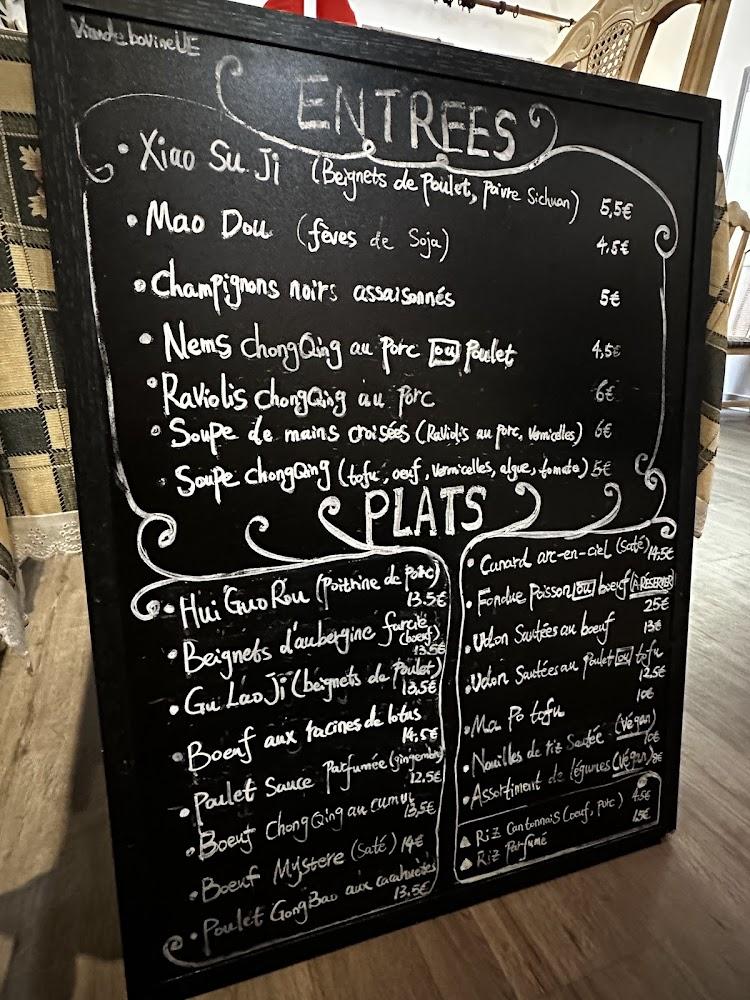 Viande bovine UE
ENTREES
• Xiao Su Ji (Beignets de Poulet, poivre Sichuan) 5,5€
• Mao Dou (fèves de Soja) 4,5€
• Champignons noirs assaisonnés 5€
• Nems ChongQing au Porc ou Poulet 4,5€
• Raviolis ChongQing au Porc 6€
• Soupe de mains croisées (Raviolis au porc, Vermicelles) 6€
• Soupe ChongQing (tofu, oeuf, vermicelles, algue, tomate) 5€
PLATS
• Hui Guo Rou (Poitrine de Porc)
13.5€
• Beignets d'aubergine farcie
(boeuf)
13.5€
• Gu Lao Ji (beignets de Poulet)
13,5€
• Boeuf aux racines de lotus
14,5€
• Poulet Sauce Parfumée (gingembre)
12.5€
• Boeuf ChongQing au cumin
13,5€
• Boeuf Mystere (Saté) 14€
• Poulet GongBao aux cacahuètes
13,5€
• Canard arc-en-ciel (Saté)
14,5€
• Fondue Poisson ou boeuf (À RÉSERVER)
25€
• Udon Sautées au boeuf
13€
• Udon Sautées au Poulet ou tofu
12.5€
• Ma Po tofu
10€
• Nouilles de riz Sautée (Végan)
10€
• Assortiment de légumes (Végan) 8€
▲ Riz Cantonnais (oeuf, porc) 4.5€
▲ Riz Parfumé 1.5€